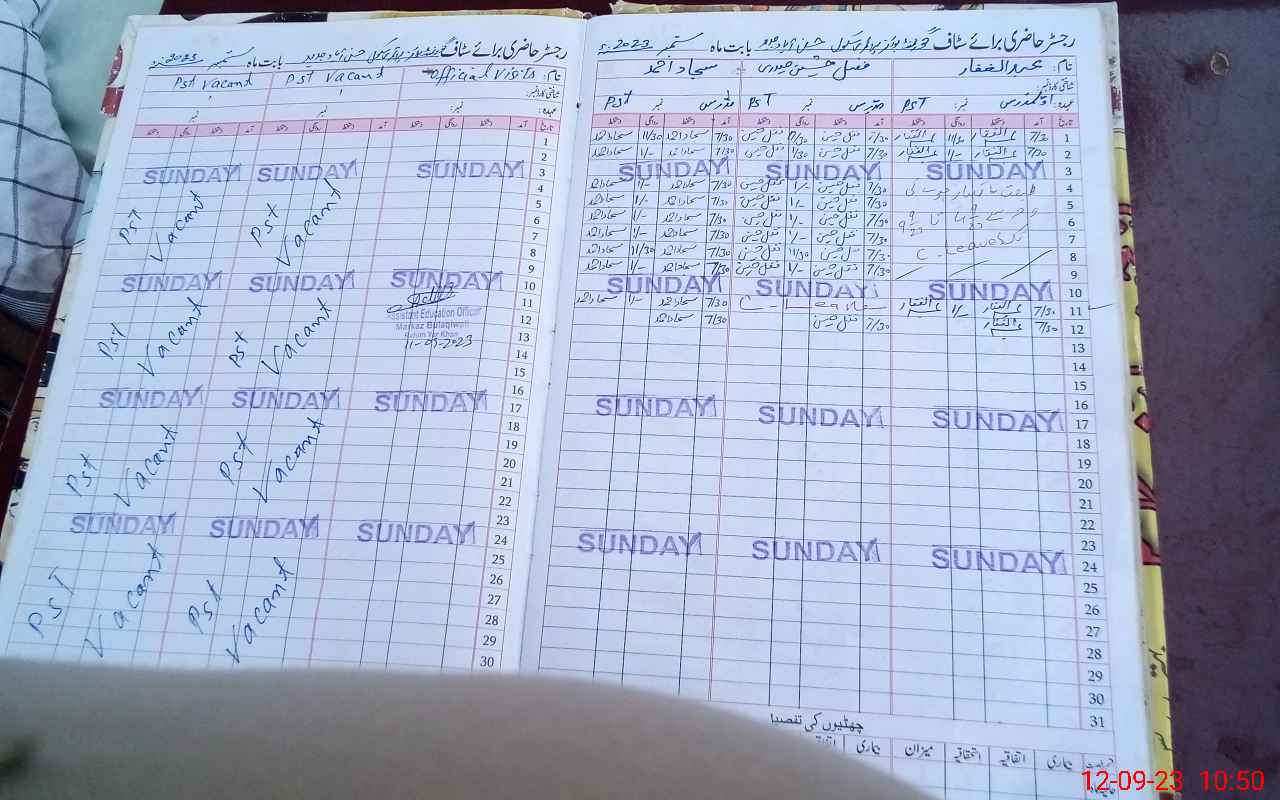 رجسٹر حاضری برائے سٹاف گورنمنٹ بوائز پرائمری سکول حسن آباد جدید بابت ماہ ستمبر 2023ء
نام: عبدالغفار فضل حسین حیدری سجاد احمد
شناختی کارڈ نمبر:
عہدہ: مدرس PST نمبر: مدرس PST نمبر مدرس PST
تاریخ آمد دستخط روانگی دستخط آمد دستخط روانگی دستخط آمد دستخط روانگی دستخط
1 7/30 عبدالغفار 11/30 عبدالغفار 7/30 فضل حسین 11/30 فضل حسین 7/30 سجاد احمد 11/30 سجاد احمد
2 7/30 عبدالغفار 1/- عبدالغفار 7/30 فضل حسین 1/30 فضل حسین 7/30 سجاد احمد 1/- سجاد احمد
3 SUNDAY SUNDAY SUNDAY
4 7/30 فضل حسین 1/- فضل حسین 7/30 سجاد احمد 1/- سجاد احمد
5 7/30 فضل حسین 1/- فضل حسین 7/30 سجاد احمد 1/- سجاد احمد
6 7/30 فضل حسین 1/- فضل حسین 7/30 سجاد احمد 1/- سجاد احمد
7 C-Leave 7/30 فضل حسین 1/- فضل حسین 7/30 سجاد احمد 1/- سجاد احمد
8 7/30 فضل حسین 11/30 فضل حسین 7/30 سجاد احمد 11/30 سجاد احمد
9 7/30 فضل حسین 1/- فضل حسین 7/30 سجاد احمد 1/- سجاد احمد
10 SUNDAY SUNDAY SUNDAY
11 7/30 عبدالغفار 1/- عبدالغفار C-Leave 7/30 سجاد احمد 1/- سجاد احمد
12 7/30 عبدالغفار 7/30 فضل حسین 7/30 سجاد احمد
13
14
15
16
17 SUNDAY SUNDAY SUNDAY
18
19
20
21
22
23
24 SUNDAY SUNDAY SUNDAY
25
26
27
28
29
30
31
چھٹیوں کی تفصیل
بیماری اتفاقیہ استحقاقیہ میزان بیماری
رجسٹر حاضری برائے سٹاف گورنمنٹ بوائز پرائمری سکول حسن آباد جدید بابت ماہ ستمبر 2023ء
نام: Official Visits Pst Vacant Pst Vacant
شناختی کارڈ نمبر:
عہدہ: نمبر: نمبر نمبر
تاریخ آمد دستخط روانگی دستخط آمد دستخط روانگی دستخط آمد دستخط روانگی دستخط
1
2
3 SUNDAY SUNDAY SUNDAY
4
5
6 Pst Vacant Pst Vacant
7
8
9
10 SUNDAY SUNDAY SUNDAY
11
Assistant Education Officer
12 Markaz Bulaqiwali
Rahim Yar Khan
13 11-09-2023 Pst Vacant Pst Vacant
14
15
16
17 SUNDAY SUNDAY SUNDAY
18
19
20 Pst Vacant Pst Vacant
21
22
23
24 SUNDAY SUNDAY SUNDAY
25
26
27
28 Pst Vacant PST Vacant
29
30
12-09-23 10:50